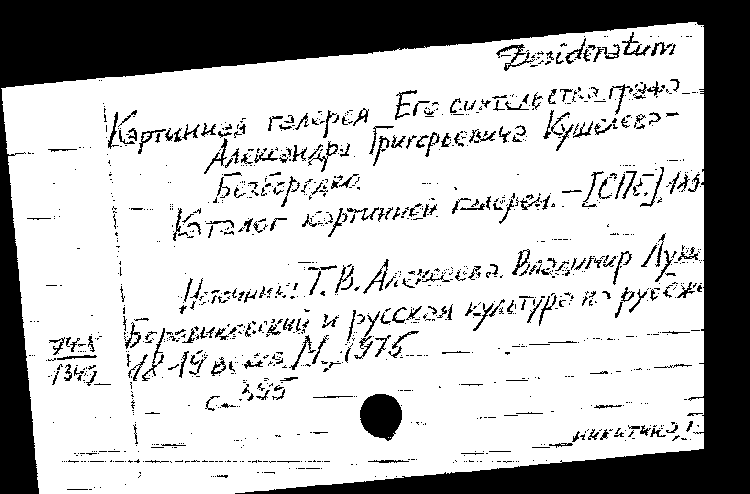 Desideratum
Картинная галерея Его сиятельства графа
Александра Григорьевича Кушелева-
Безбородко.
Каталог картинной галереи. — [СПб.], 185
Источник: Т. В. Алексеева. Владимир Луки
Боровиковский и русская культура на рубеже
18-19 веков. М., 1975
с. 395
74-8
1349
никитина, 1